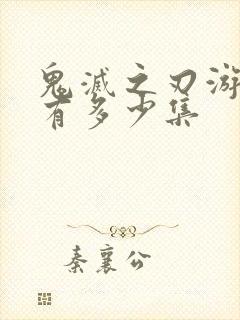 鬼滅之刃游
有多少集
秦襄公